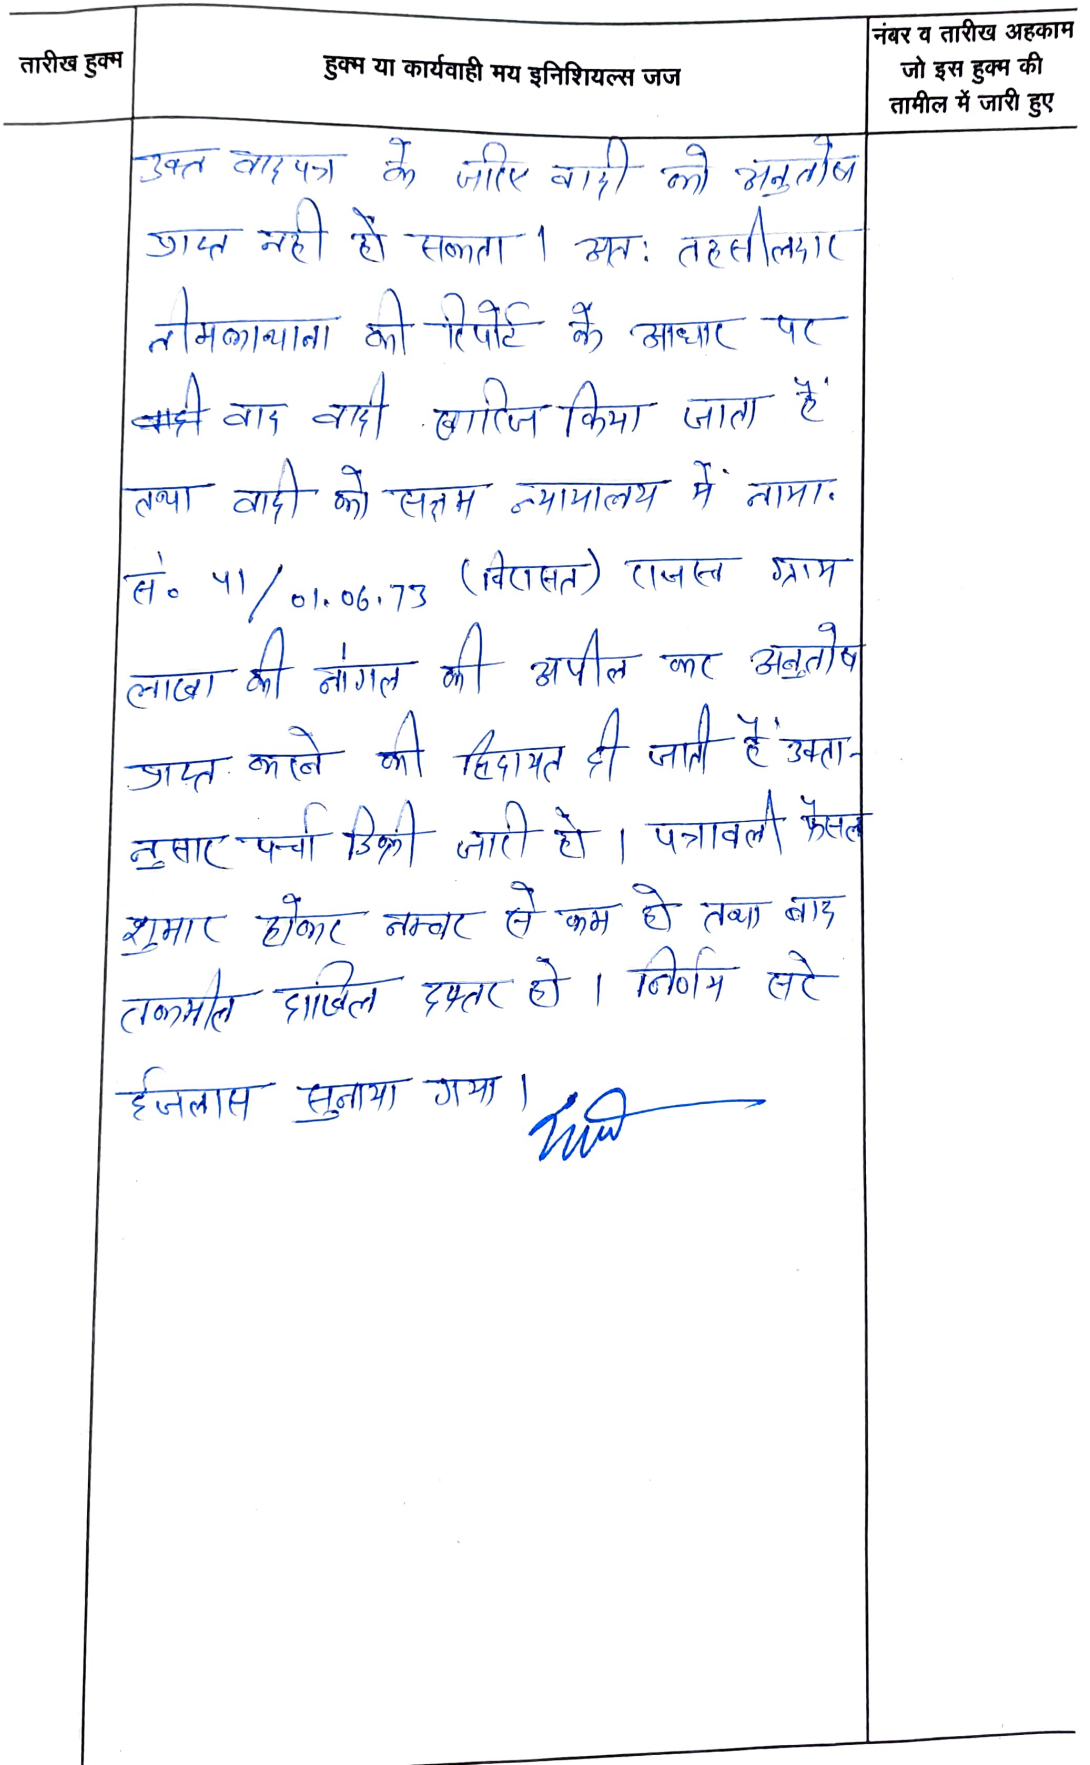 तारीख हुक्म
हुक्म या कार्यवाही मय इनिशियल्स जज
नंबर व तारीख अहकाम
जो इस हुक्म की
तामील में जारी हुए
उक्त वादपत्र के जरिए वादी को अनुतोष
प्राप्त नही हो सकता । अत: तहसीलदार
नीमकाथाना की रिपोर्ट के आधार पर
वाद वादी खारिज किया जाता हैं
तथा वादी को सक्षम न्यायालय में नामा.
सं० 41/01.06.73 (विरासत) राजस्व ग्राम
लाखा की नांगल की अपील कर अनुतोष
प्राप्त करने की हिदायत दी जाती हैं उक्ता-
नुसार पर्चा डिक्री जारी हो । पत्रावली फैसल
शुमार होकर नम्बर से कम हो तथा बाद
तकमील दाखिल दफ्तर हो । निर्णय सरे
ईजलास सुनाया गया ।